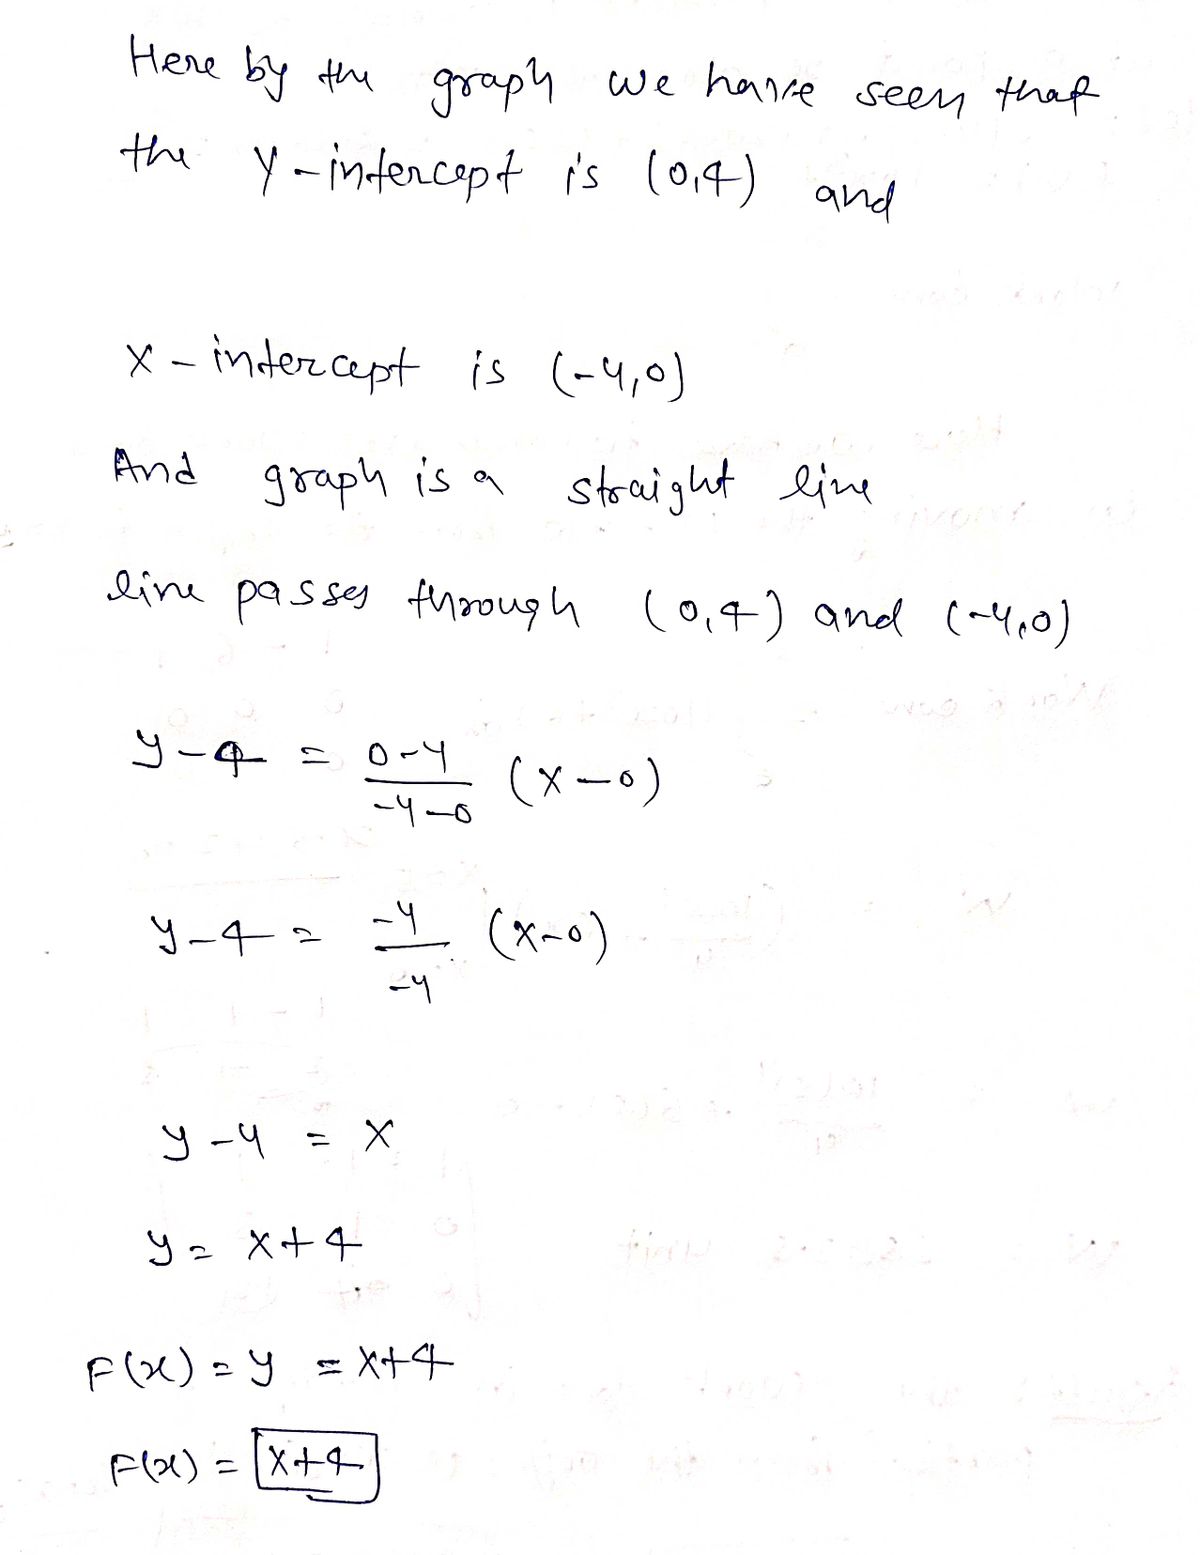 Here by the graph we have seen that
the y-intercept is (0,4) and
x-intercept is (-4,0)
And graph is a straight line
line passes through (0,4) and (-4,0)
y-4 = 0-4/-4-0 (x-0)
y-4 = -4/-4 (x-0)
y-4 = x
y = x+4
F(x) = y = x+4
F(x) = x+4